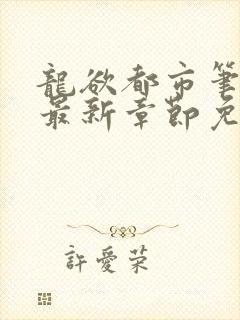 龍欲都市筆
最新章節免
許愛荣